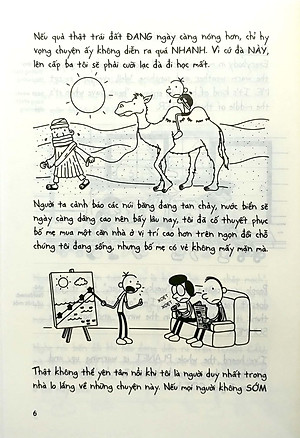 Nếu quả thật trái đất ĐANG ngày càng nóng hơn, chỉ hy
vọng chuyện ấy không diễn ra quá NHANH. Vì cứ đà NÀY,
lên cấp ba tôi sẽ phải cưỡi lạc đà đi học mất.
Người ta cảnh báo các núi băng đang tan chảy, nước biển sẽ
ngày càng dâng cao nên bấy lâu nay, tôi đã cố thuyết phục
bố mẹ mua một căn nhà ở vị trí cao hơn trên ngọn đồi chỗ
chúng tôi đang sống, nhưng bố mẹ có vẻ không mấy mặn mà.
Thật không thể yên tâm nổi khi tôi là người duy nhất trong
nhà lo lắng về những chuyện này. Nếu mọi người không SỚM
6